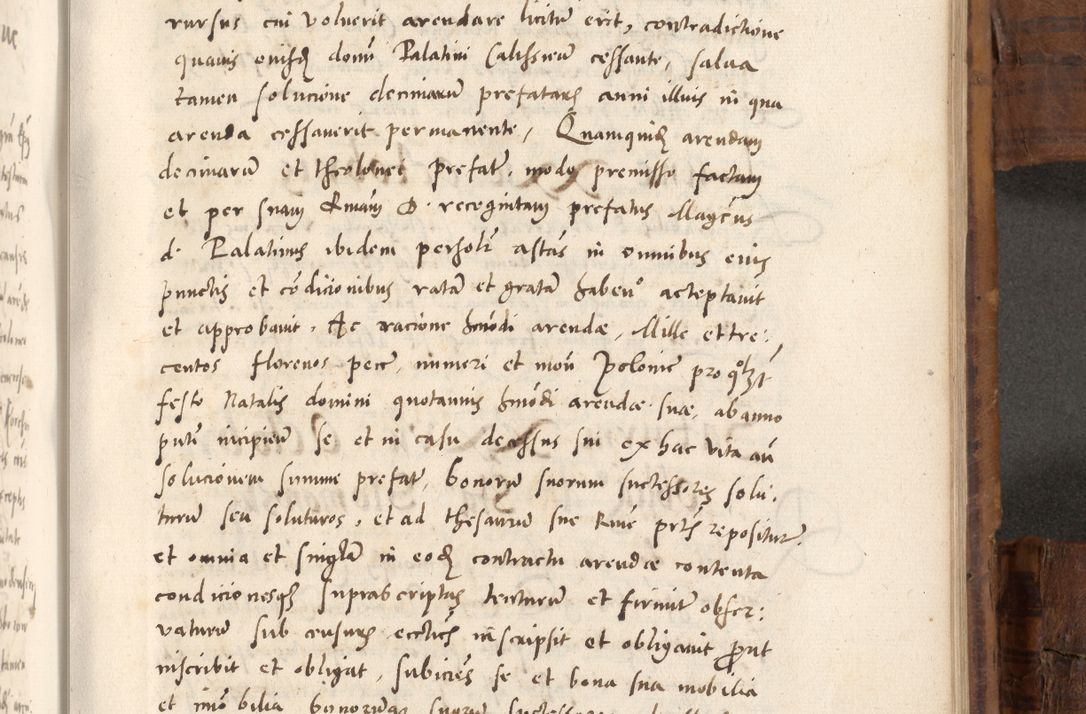 rursus cui voluerit arendare licitũ erit, contradictione
quavis eiusdẽ domĩ Palatini Calissieñ cessante, salva
tamen solucione decimarũ prefatarũ anni illius in qua
arenda cessaverit permanente, Quamquidẽ arendam
decimarũ et theolonei prefat, modo premisso factam
et per suam Rmam D. recognitam prefatus Magcus
d. Palatinus ibidem personlr astãs in omnibus eius
punctis et cõdicionibus ratã et gratã habeno acceptavit
et approbavit. Ac racione hmõdi arendæ, Mille et tre:
centos florenos pecc, numeri et moñ Polonic pro qolzt
festo Natalis domini quotannis hmõdi arendæ suæ, ab anno
pnti incipieñ se et in casu decessus sui ex hac vita añ
solucionem summe prefat, bonorũ suorum successores solu:
turũ seu soluturos, et ad thesaurũ sue Rme prtis repositur:
et omnia et singla in eodẽ contractu arendæ contenta
condicionesqз suprascriptas tenturũ et firmiter obser:
vaturũ sub censuris ecclicis inscripsit et obligavit prout
inscribit et obligat, subiciẽs se et bona sua mobilia
et immobilia bonorumqз suorũ successores